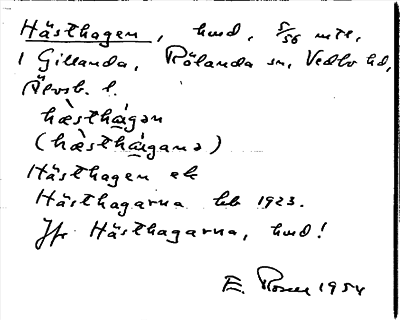 Hästhagen, hmd, 5/56 mtl,
i Gillanda, Rölanda sn, Vedbo hd,
Älvsb. l.
hæ̀stháigən
(hæ̀stháigana)
Hästhagen ek
Hästhagarna 1923.
Jfr Hästhagarna, hmd!
E. Rosell 1954